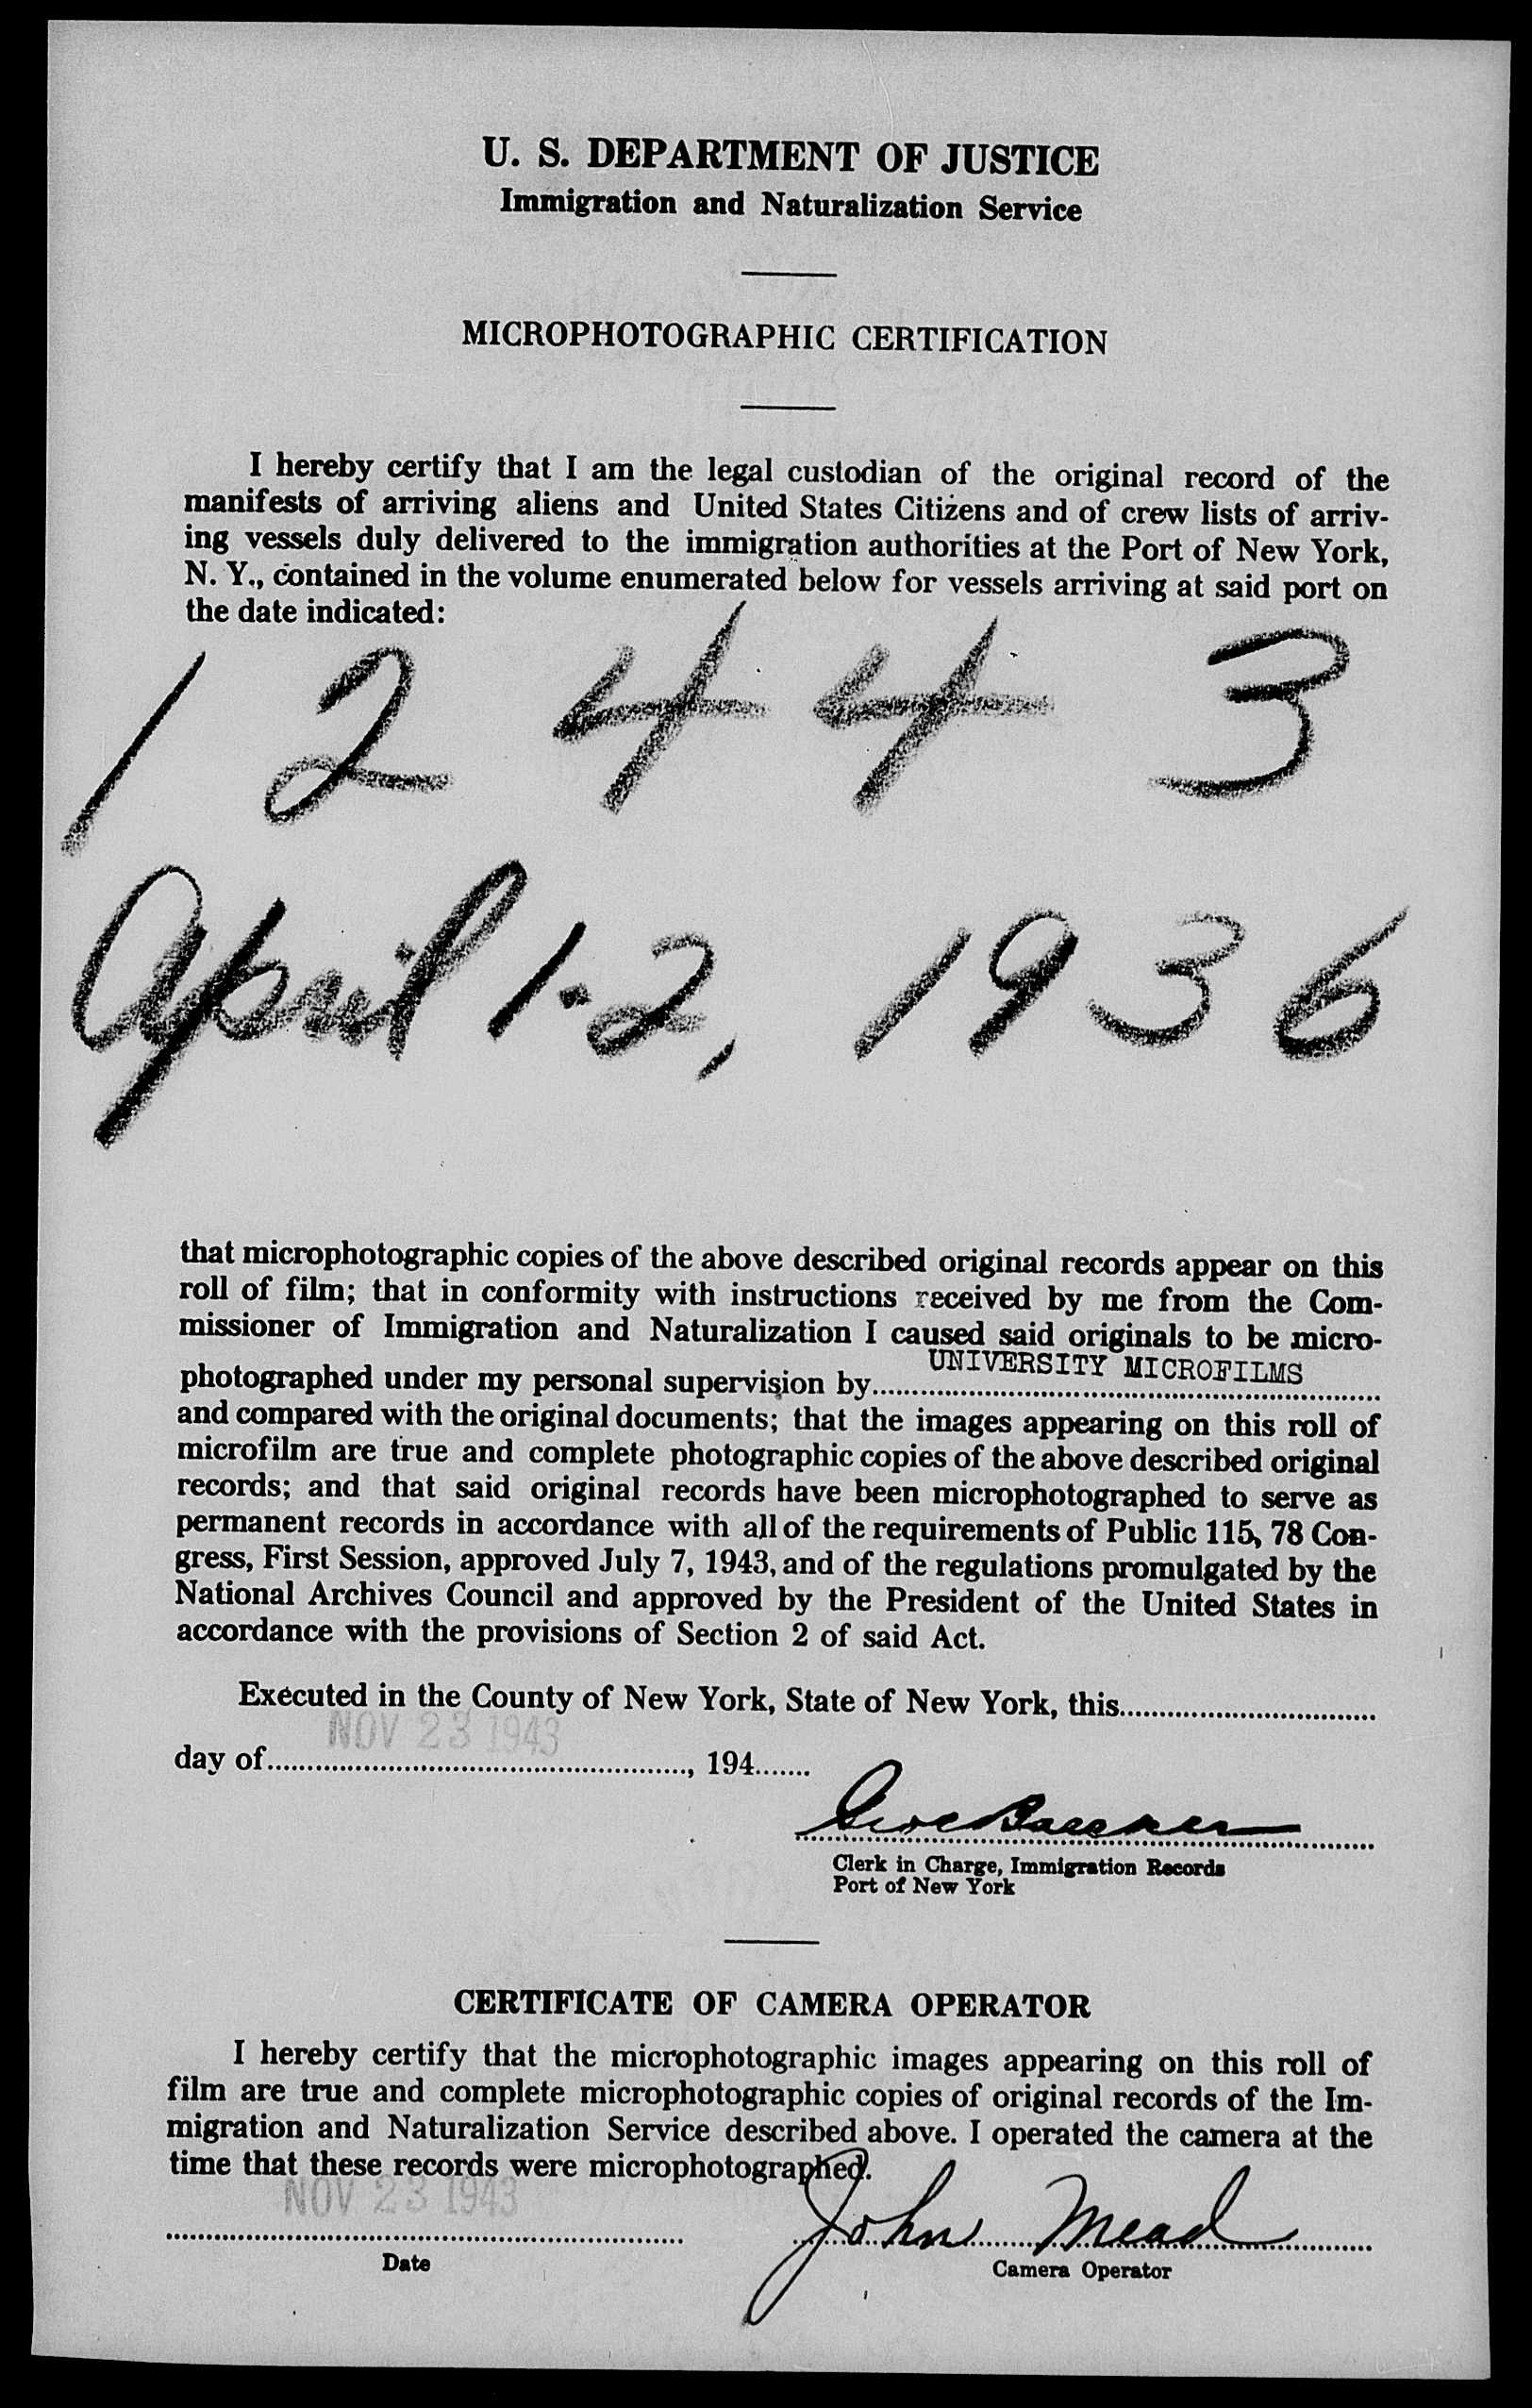 U. S. DEPARTMENT OF JUSTICE
Immigration and Naturalization Service
MICROPHOTOGRAPHIC CERTIFICATION
I hereby certify that I am the legal custodian of the original record of the
manifests of arriving aliens and United States Citizens and of crew lists of arriv-
ing vessels duly delivered to the immigration authorities at the Port of New York,
N. Y., contained in the volume enumerated below for vessels arriving at said port on
the date indicated:
12443
April 1-2, 1936
that microphotographic copies of the above described original records appear on this
roll of film; that in conformity with instructions received by me from the Com-
missioner of Immigration and Naturalization I caused said originals to be micro-
photographed under my personal supervision by UNIVERSITY MICROFILMS
and compared with the original documents; that the images appearing on this roll of
microfilm are true and complete photographic copies of the above described original
records; and that said original records have been microphotographed to serve as
permanent records in accordance with all of the requirements of Public 115, 78 Con-
gress, First Session, approved July 7, 1943, and of the regulations promulgated by the
National Archives Council and approved by the President of the United States in
accordance with the provisions of Section 2 of said Act.
Executed in the County of New York, State of New York, this
NOV 23 1943
day of , 194
Clerk in Charge, Immigration Records
Port of New York
CERTIFICATE OF CAMERA OPERATOR
I hereby certify that the microphotographic images appearing on this roll of
film are true and complete microphotographic copies of original records of the Im-
migration and Naturalization Service described above. I operated the camera at the
time that these records were microphotographed.
NOV 23 1943
John Mead
Date
Camera Operator